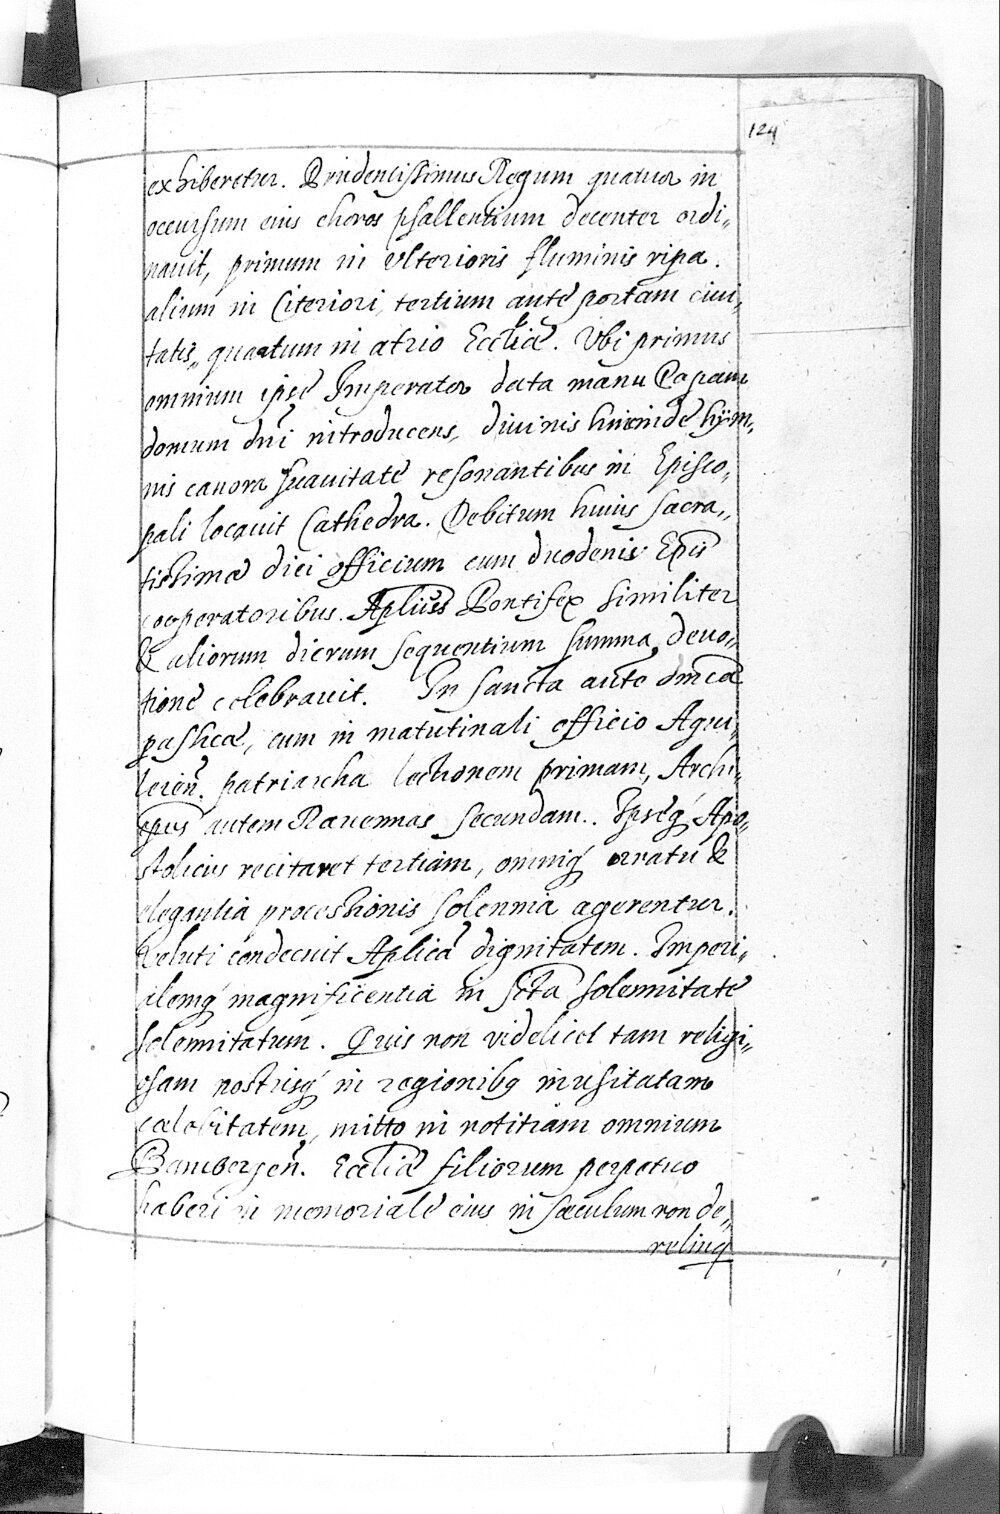 124
exhiberetur. Prudentissimus Regum quatuor in
occursum eius choros psallentium decenter ordi„
navit, primum in ulterioris fluminis ripa.
alium in Citeriori, tertium ante portam civi„
tatis„ quartum in atrio Ecclīæ. Ubi primus
omnium ipse Imperator data manu Papam
domum dn̄i introducens, divinis hym„
nis canora suavitate resonantibus in Episco„
pali locavit Cathedra. Debitum huius sacra„
tissimæ diei officium cum duodenis Ep̄is
cooperatoribus. Ap̄licus Pontifex similiter
& aliorum dierum sequentium summa devo„
tione celebravit. In sancta autē dn̄icā
paschæ, cum in matutinali officio Aqui„
leien̄. patriarcha lectionem primam, Archi„
ep̄us autem Ravennas secundam. Ipseq́ Apo„
stolicus recitaret tertiam, omniq́ ornatu &
elegantia processionis solennia agerentur.
Veluti condecuit Ap̄licā dignitatem. Imperi„
alemq́ magnificentia in sc̄ta solennitate
solennitatum. Quis non videlicet tam religi„
osam nostrisq́ in regionibq inusitatam
celebritatem, mitto in notitiam omnium
Bambergen̄. Ecclīæ filiorum perpetuo
haberi in memoriale eius in sæculum non de„
relinq